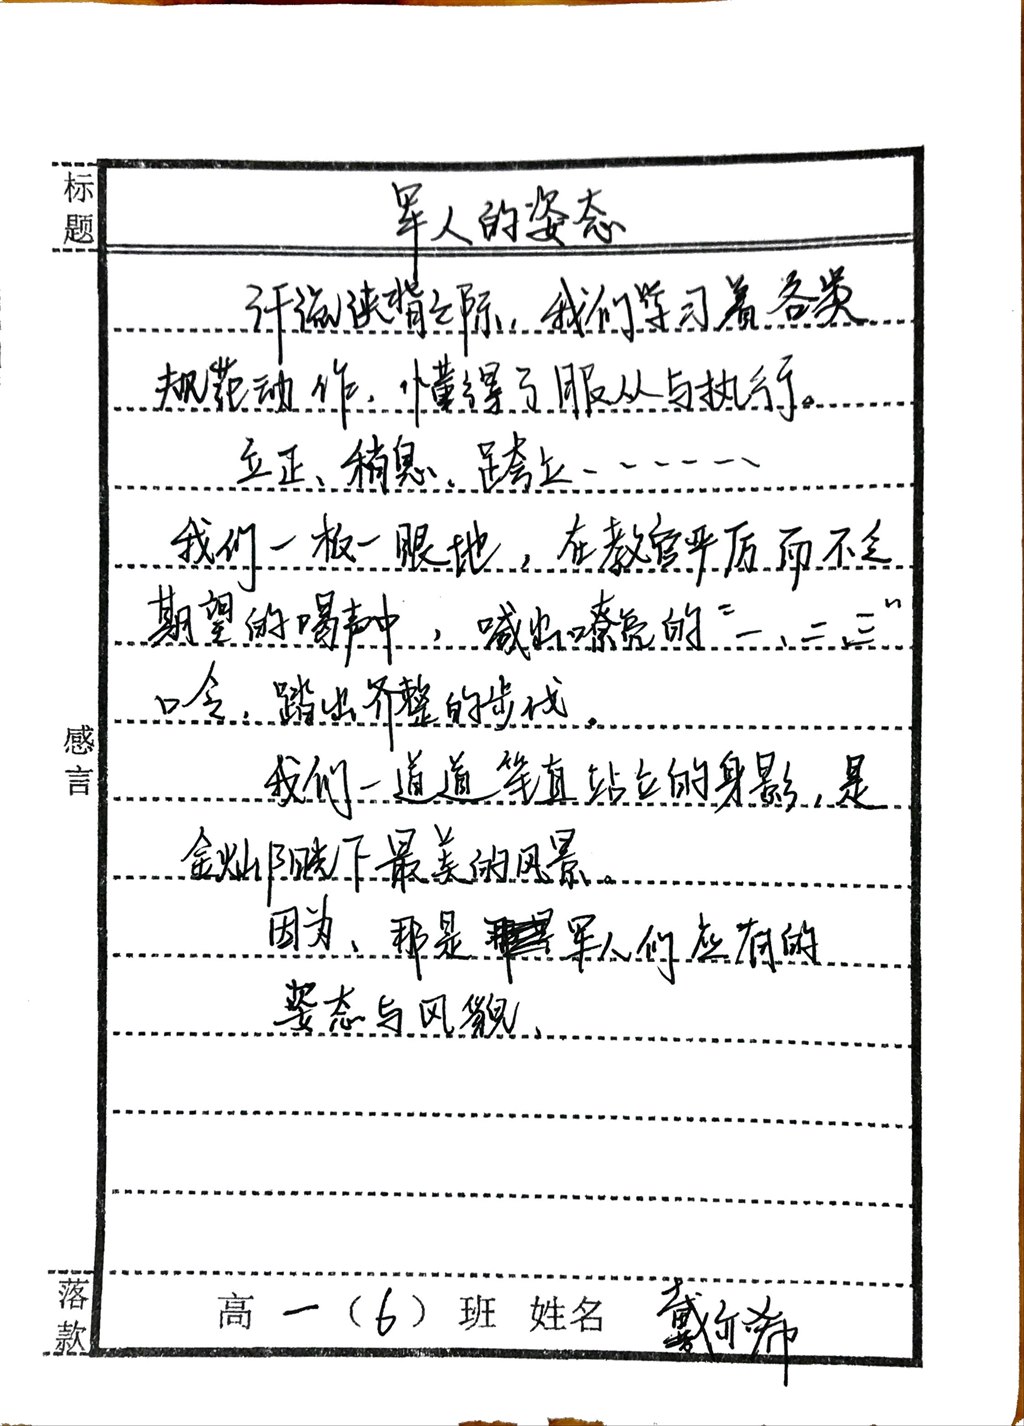 标题
军人的姿态
汗流浃背之际，我们学习着各类
规范动作，懂得了服从与执行。
立正、稍息、跨立------
我们一板一眼地，在教官严厉而不乏
期望的喝声中，喊出嘹亮的“一、二、三”
口令，踏出齐整的步伐。
感言
我们一道道笔直站立的身影，是
金灿阳光下最美的风景。
因为，那是军人们应有的
姿态与风貌。
落款
高一（6）班 姓名 戴尔希